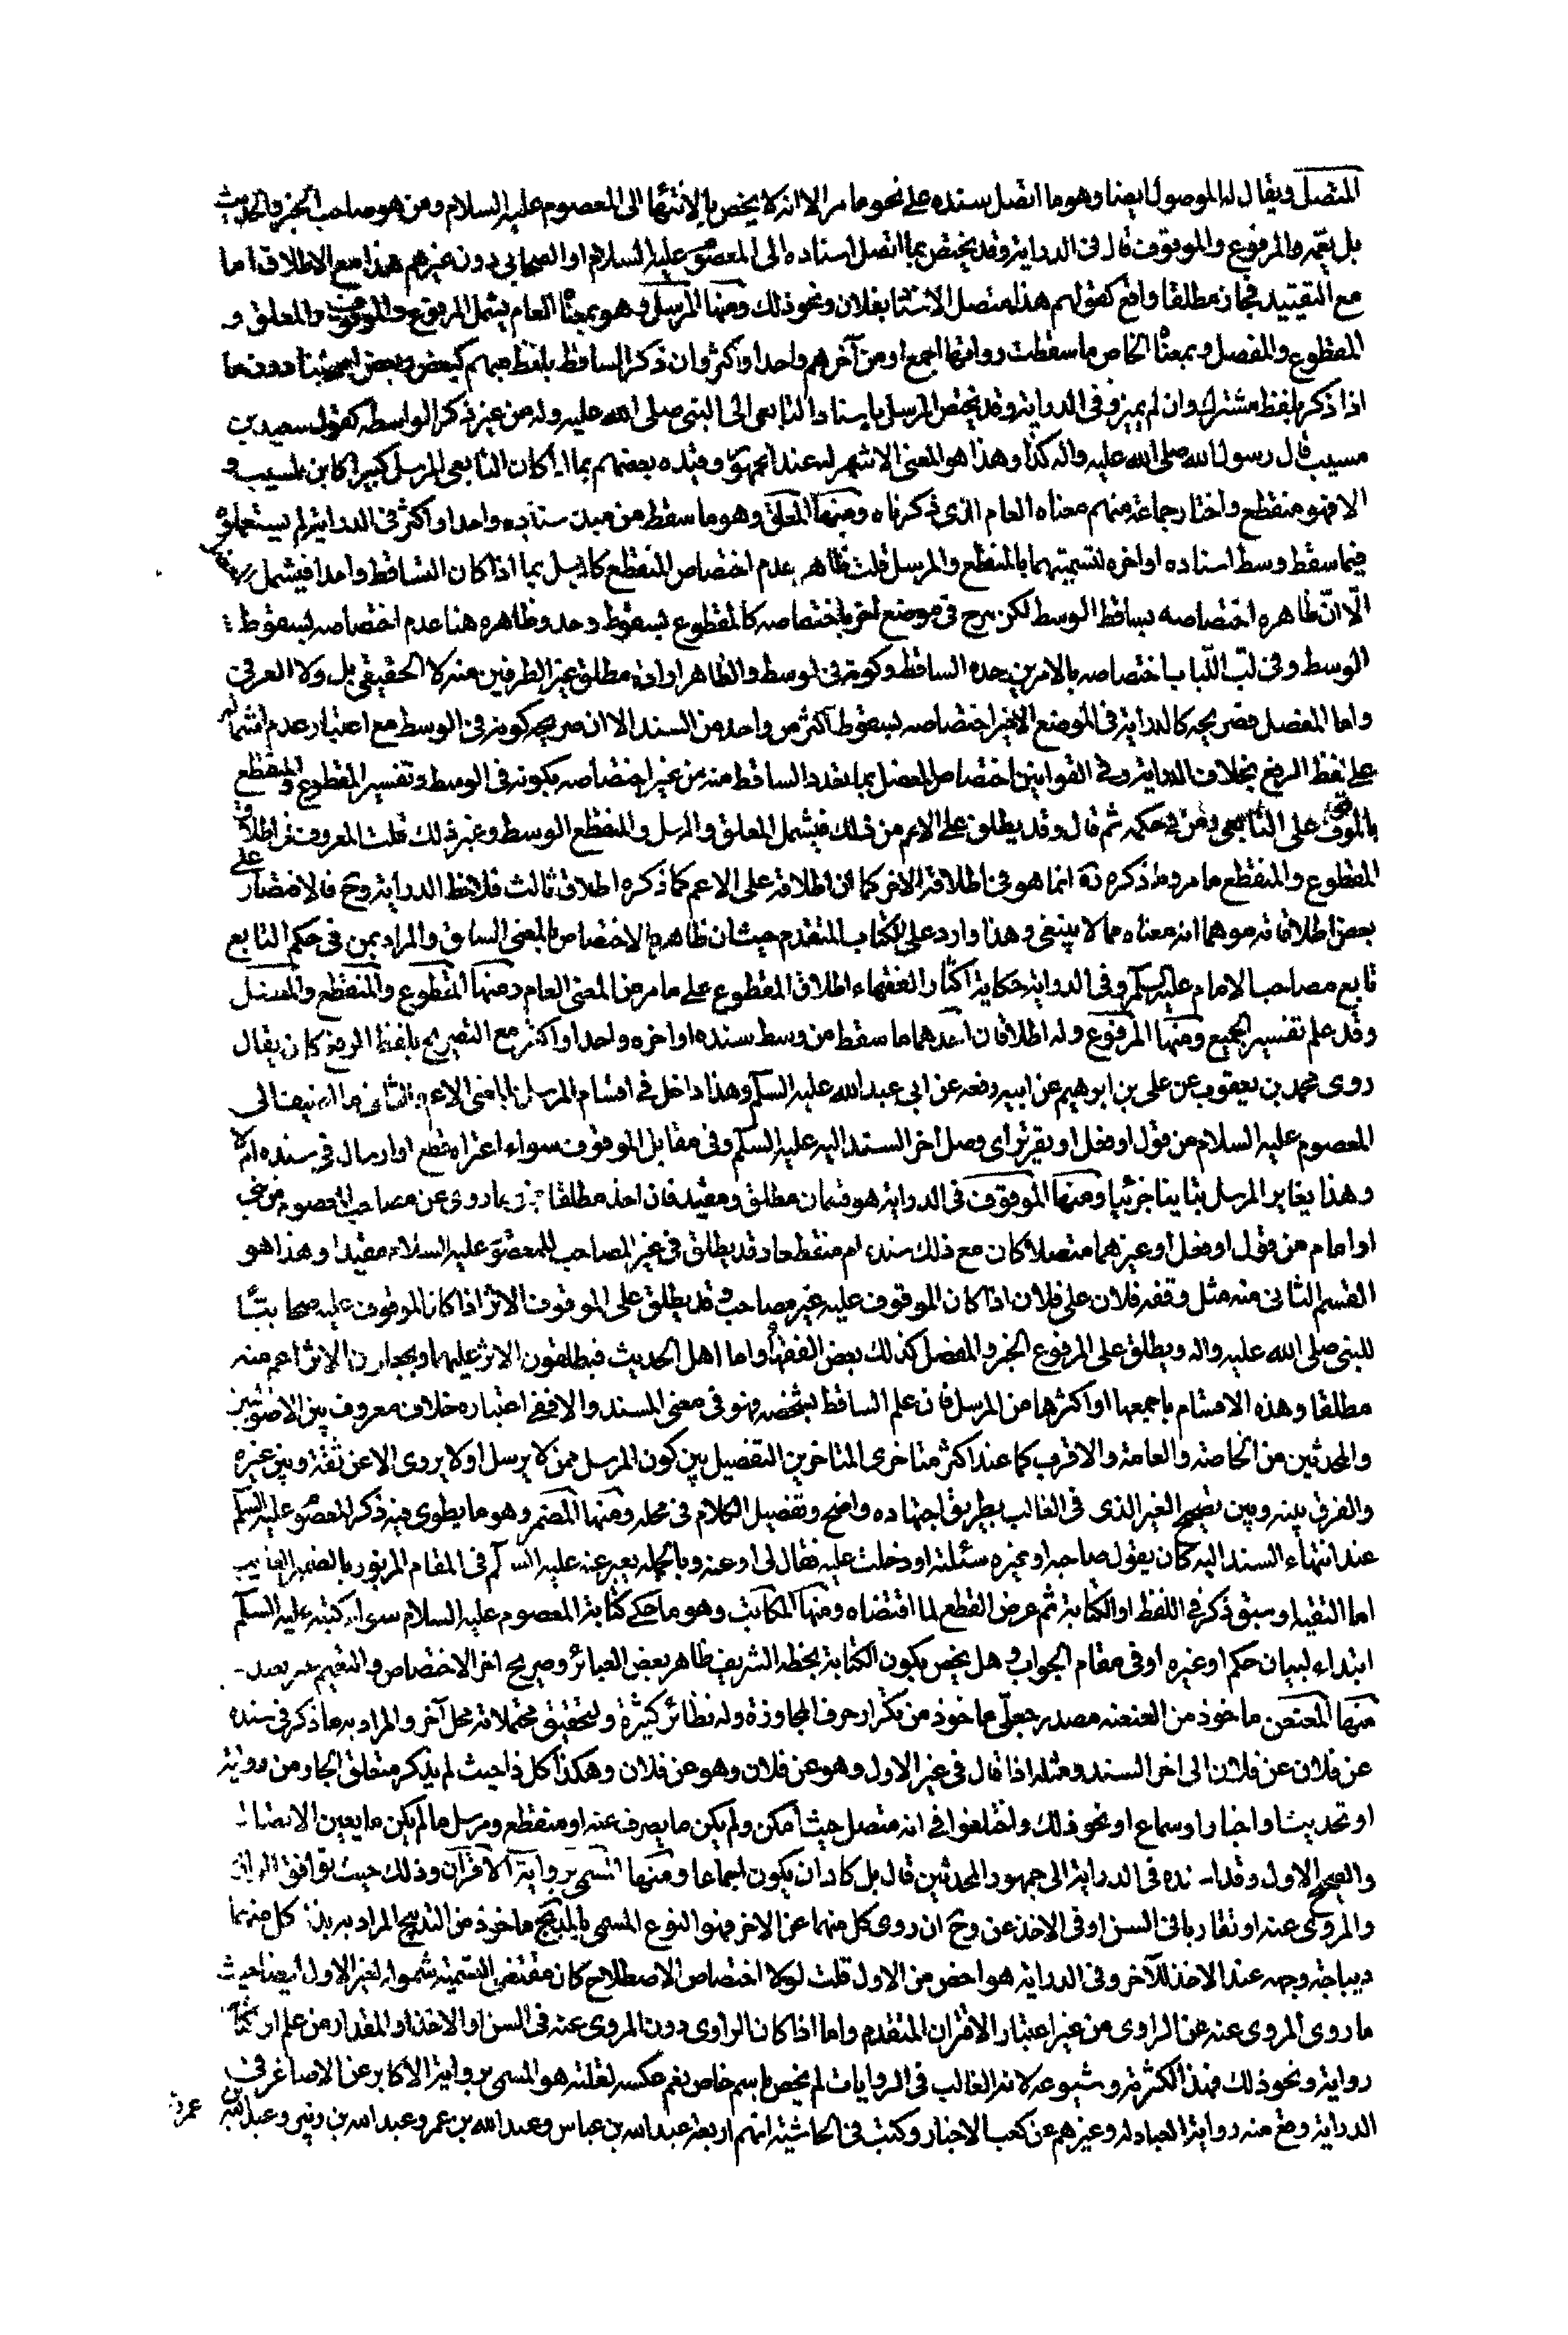 المتصل ويقال له الموصول ايضا وهو ما اتصل بسنده على نحو ما مر الا انه لا يخص بالانتهاء الى المعصوم عليه السلام ومن هو صاحب الخبر والحديث
بل يعمه والمرفوع والموقوف قال فى الدراية وقد يختص بما اتصل اسناده الى المعصوم عليه السلام او الصحابى دون غيرهم هذا مع الاطلاق اما
مع التقييد فجائز مطلقا واقع كقولهم هذا متصل الاسناد بفلان ونحو ذلك ومنها المرسل وهو بمعناه العام يشمل المرفوع والموقوف والمعلق و
المقطوع والمعضل وبمعناه الخاص ما سقطت رواتها اجمع او من آخرهم واحدا واكثر وان ذكر الساقط بلفظ مبهم كبعض وبعض اصحابنا دون ما
اذا ذكر بلفظ مشترك وان لم يميز وفى الدراية وقد يختص المرسل باسناد التابعى الى النبى صلى الله عليه وله من غير ذكر الواسطه كقول سعيد بن
مسيب قال رسول الله صلى الله عليه واله كذا وهذا هو المعنى الاشهر له عند الجمهور وقيده بعضهم بما اذا كان التابعى المرسل كبيرا كابن المسيب و
الا فهو منقطع واختار جماعة منهم معناه العام الذى ذكرناه ومنها المعلق وهو ما سقط من مبدء سناده واحدا واكثر فى الدراية لم يستعملوه
فيما سقط وسط اسناده او اخره لتسميتهما بالمنقطع والمرسل قلت ظاهره عدم اختصاص المنقطع كالمرسل بما اذا كان الساقط واحدا فيشمل
الا ان ظاهره اختصاصه بساقط الوسط لكن صرح فى موضع اخر باختصاصه كالمقطوع بسقوط واحد وظاهره هنا عدم اختصاصه بسقوط
الوسط وفى لب اللباب اختصاصه بالامرين وحدة الساقط وكونه فى الوسط والظاهر ارادة مطلق غير الطرفين منه لا الحقيقى بل ولا العرفى
واما المعضل فصريحه كالدراية فى الموضع الاخير اختصاصه بسقوط اكثر من واحد من السند الا ان صريحه كونه فى الوسط مع اعتبار عدم اشتماله
على لفظ الرفع بخلاف الدراية وفى القوانين اختصاص المعضل بما تعدد الساقط منه من غير اختصاصه بكونه فى الوسط وتفسير المقطوع والمنقطع
بالموقوف على التابعى ومن فى حكمه ثم قال وقد يطلق على الاعم من ذلك فيشمل المعلق والمرسل والمنقطع الوسط وغير ذلك قلت المعروف فى اطلاق
المقطوع والمنقطع ما مر وما ذكره ره انما هو فى اطلاقه الاخر كما ان اطلاقه على الاعم كما ذكره اطلاق ثالث فلاحظ الدراية وح فالاقتصار على
بعض اطلاقاته موهما انه معناه مما لا ينبغى وهذا وارد على الكتاب المتقدم حيث ان ظاهره الاختصاص بالمعنى السابق والمراد بمن فى حكم التابع
تابع مصاحب الامام عليه السلم وفى الدراية حكاية اكثار الفقهاء اطلاق المقطوع على ما مر من المعنى العام ومنها المقطوع والمنقطع والمعضل
وقد علم تفسير الجميع ومنها المرفوع وله اطلاقان احدهما ما سقط من وسط سنده او اخره واحد او اكثر مع التصريح بلفظ الرفع كان يقال
روى محمد بن يعقوب عن على بن ابرهيم عن ابيه رفعه عن ابى عبد الله عليه السلم وهذا داخل فى اقسام المرسل بالمعنى الاعم والثانى ما اضيف الى
المعصوم عليه السلام من قول او فعل او تقرير اى وصل اخر السند اليه عليه السلم وفى مقابل الموقوف سواء اعتراه قطع او ارسال فى سنده ام لا
وهذا يغاير المرسل تباينا جزئيا ومنها الموقوف فى الدراية هو قسمان مطلق ومقيد فان اخذ مطلقا فهو ما روى عن مصاحب المعصوم من نبى
او امام من قول او فعل او غيرهما متصلا كان مع ذلك سنده ام منقطعا وقد يطلق فى غير المصاحب للمعصوم عليه السلام مقيدا وهذا هو
القسم الثانى منه مثل وقفه فلان على فلان اذا كان الموقوف عليه غير مصاحب وقد يطلق على الموقوف الاثر اذا كان الموقوف عليه صحابيا
للنبى صلى الله عليه واله ويطلق على المرفوع الخبر والمفصل كذلك بعض الفقهاء واما اهل الحديث فيطلقون الاثر عليهما ويجعلون الاثر اعم منه
مطلقا وهذه الاقسام باجمعها او اكثرها من المرسل فان علم الساقط بشخصه فهو فى معنى المسند والا ففى اعتباره خلاف معروف بين الاصوليين
والمحدثين من الخاصة والعامة والاقرب كما عند اكثر متاخرى المتاخرين التفصيل بين كون المرسل ممن لا يرسل او لا يروى الا عن ثقة وبين غيره
والفرق بينه وبين تصحيح الغير الذى فى الغالب بطريق اجتهاده واضح وتفصيل الكلام فى محله ومنها المضمر وهو ما يطوى فيه ذكر المعصوم عليه السلم
عند انتهاء السند اليه كان يقول صاحبه او غيره سئلته او دخلت عليه فقال لى او عنه وبالجمله يعبر عنه عليه السلم فى المقام المزبور بالضمير الغايب
اما التقية او سبق ذكر فى اللفظ او الكتابة ثم عرض القطع لما اقتضاه ومنها المكاتب وهو ما حكى كتابة المعصوم عليه السلام سواء كتبه عليه السلم
ابتداء لبيان حكم او غيره او فى مقام الجواب وهل يخص بكون الكتابة بخطه الشريف ظاهر بعض العبائر وصريح اخر الاختصاص والتعميم غير بعيد
منها المعنعن ماخوذ من العنعنه مصدر جعلى ماخوذ من تكرار حرف المجاوزة وله نظائر كثيرة ولتحقيق محتملاته محل آخر والمراد به ما ذكر فى سنده
عن فلان عن فلان الى اخر السند ومثله اذا قال فى غير الاول وهو عن فلان وهو عن فلان وهكذا كل ذا حيث لم يذكر متعلق الجار من رواية
او تحديث او اخبار او سماع او نحو ذلك واختلفوا فى انه متصل حيث امكن ولم يكن ما يصرف عنه او منقطع ومرسل ما لم يكن ما يعين الاتصال
والصحيح الاول وقد اسنده فى الدراية الى جمهور المحدثين قال بل كاد ان يكون اجماعا ومنها المسمى برواية الاقران وذلك حيث توافق الراوى
والمروى عنه او تقاربا فى السن او فى الاخذ عن وح ان روى كل منهما عن الاخر فهو النوع المسمى بالمدبج ماخوذ من التدبيج المراد به بذل كل منهما
ديباجة وجهه عند الاخذ للآخر وفى الدراية هو اخص من الاول قلت لولا اختصاص الاصطلاح كان مقتضى التسمية شموله لغير الاول ايضا حيث
ما روى المروى عنه عن الراوى من غير اعتبار الاقران المتقدم واما اذا كان الراوى دون المروى عنه فى السن او الاخذ او المقدار من علم او اكثار
رواية ونحو ذلك فهذا لكثرته وشيوعه لانه الغالب فى الروايات لم يخص باسم خاص نعم عكسه لقلته هو المسمى برواية الاكابر عن الاصاغر فى
الدراية وقع منه رواية العبادله وغيرهم عن كعب الاخبار وكتب فى الحاشية انهم اربعة عبد الله بن عباس وعبد الله بن عمر وعبد الله بن زبير وعبد الله بن
عمرو